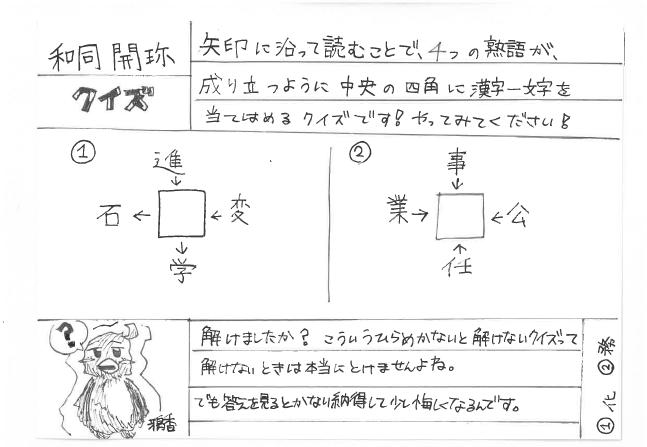 和同開珎
クイズ
矢印に沿って読むことで、4つの熟語が、
成り立つように中央の四角に漢字一文字を
当てはめるクイズです!やってみてください!
①
進
石 ← → 変
学
②
事
業 → ← 公
任
?
解けましたか?こういうひらめかないと解けないクイズって
解けないときは本当にとけませんよね。
でも答えを見るとかなり納得して少し悔しくなるんです。
①化 ②務